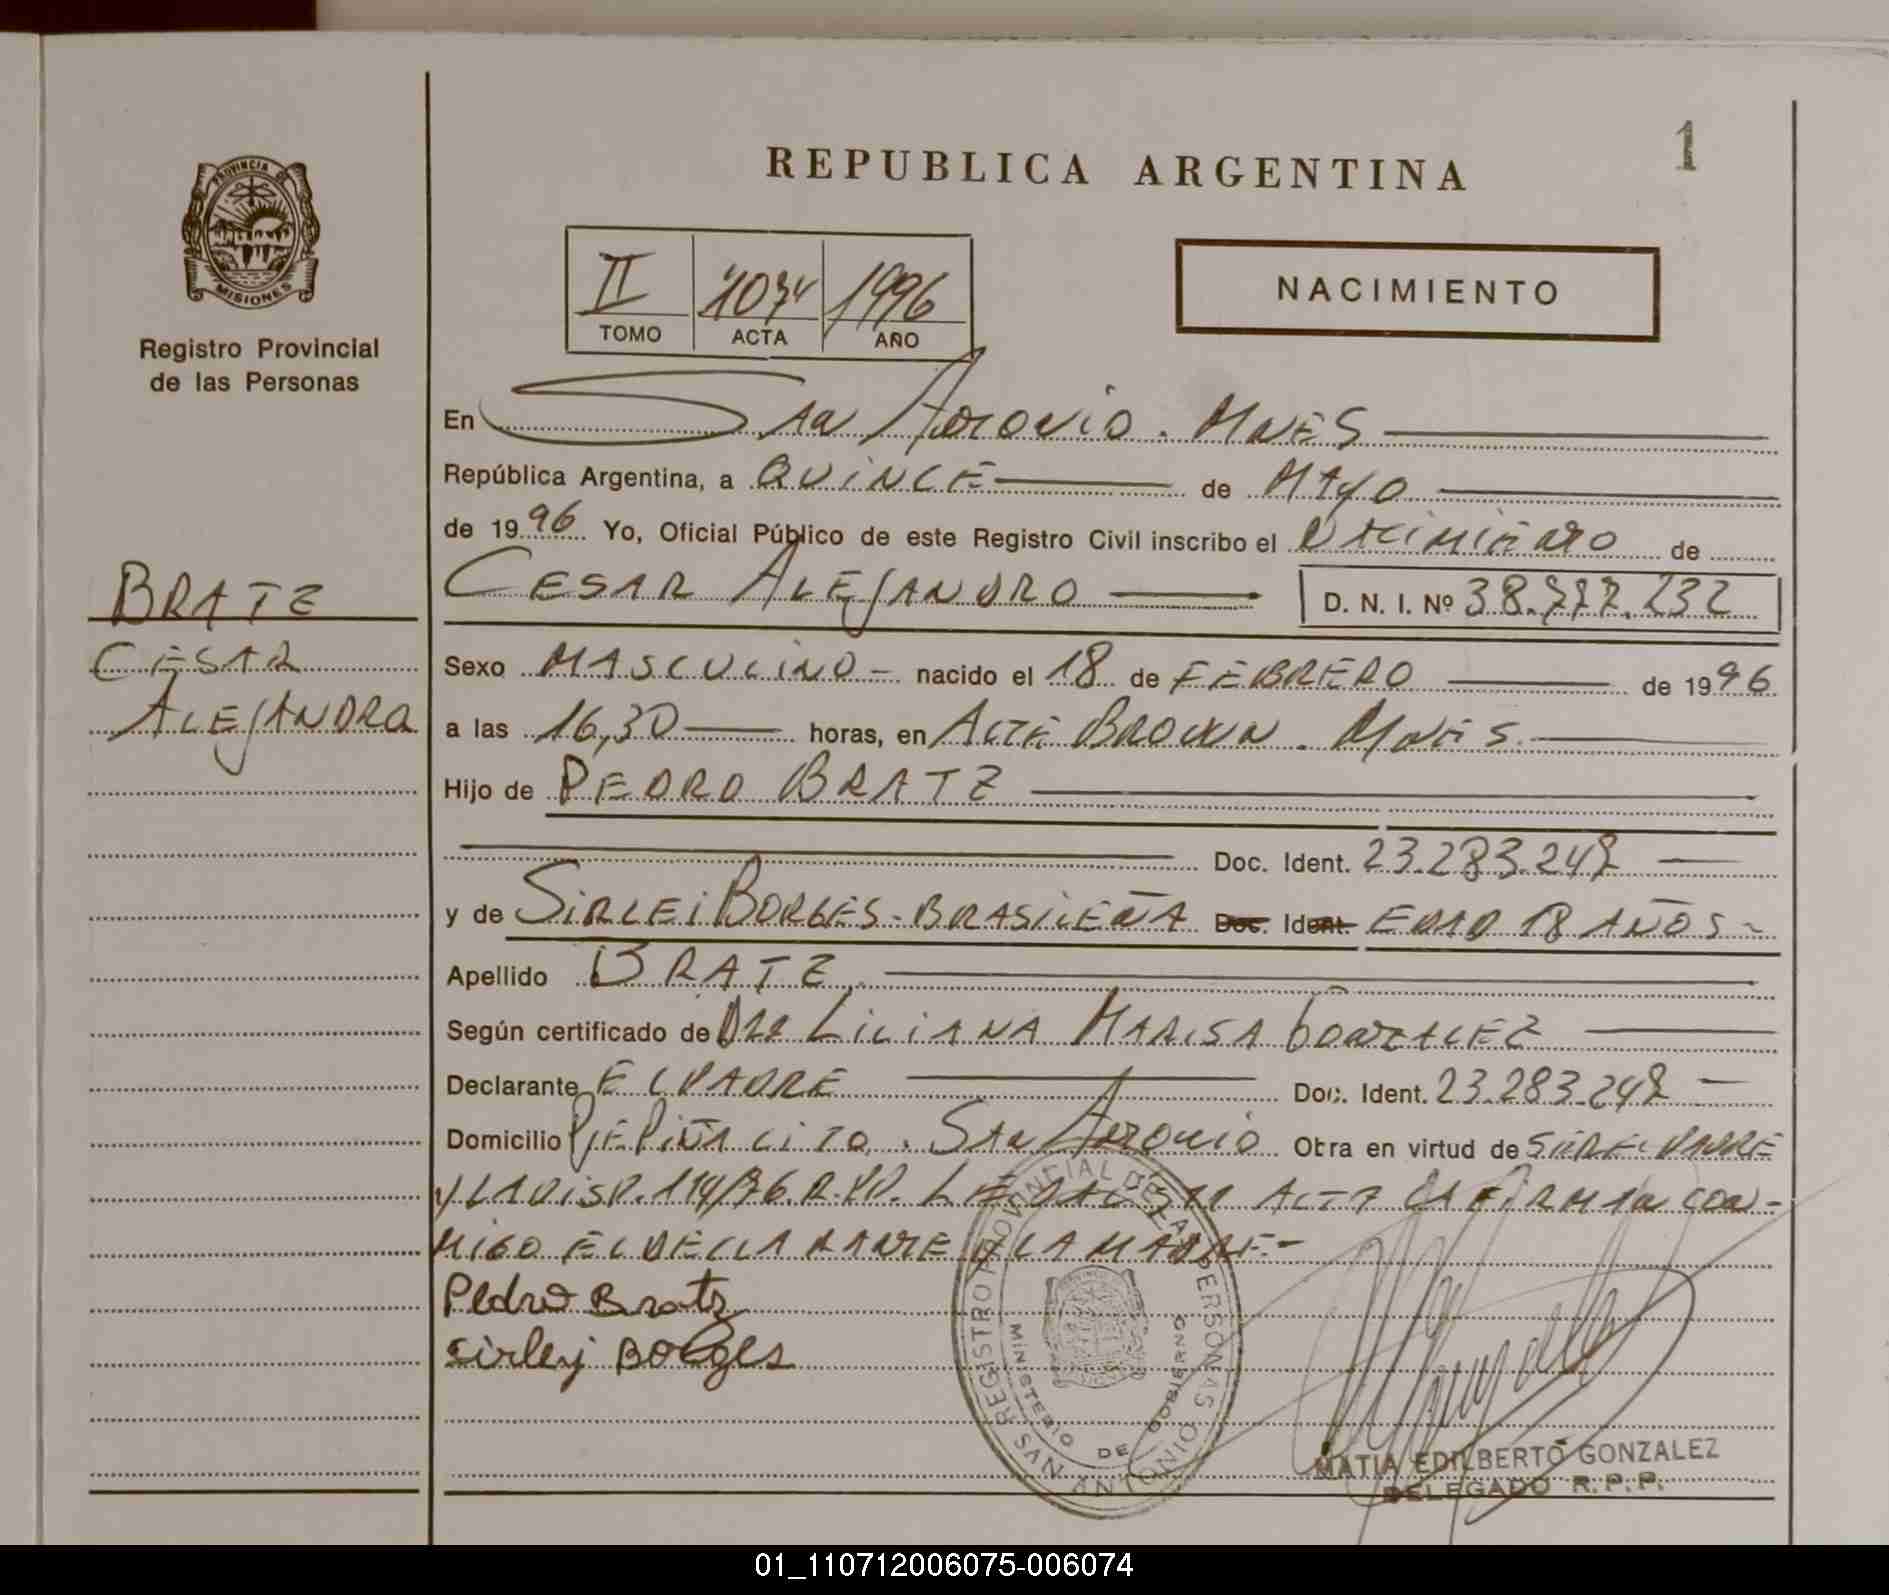 1
REPUBLICA ARGENTINA
PROVINCIA DE
MISIONES
Registro Provincial
de las Personas
II 1074 1996
TOMO ACTA AÑO
NACIMIENTO
En San Antonio. Mnes
República Argentina, a QUINCE de MAYO
de 1996 Yo, Oficial Público de este Registro Civil inscribo el NACIMIENTO de
CESAR ALEJANDRO D. N. I. Nº 38.777.232
BRATZ
CESAR
ALEJANDRO
Sexo MASCULINO - nacido el 18 de FEBRERO de 1996
a las 16,30 horas, en ALTE BROWN. Mnes.
Hijo de PEDRO BRATZ
Doc. Ident. 23.283.247
y de SIRLEI BORGES - BRASILEÑA Doc. Ident. EDAD 18 AÑOS -
Apellido BRATZ
Según certificado de Dra LILIANA MARISA GONZALEZ
Declarante EL PADRE Doc. Ident. 23.283.247
Domicilio PJE PIÑALITO. San Antonio Obra en virtud de SER EL PADRE
y LA DISP. 114/96. R.P.P. LEIDA ACTA LA FIRMAN CON-
MIGO EL DECLARANTE Y LA MADRE.-
Pedro Bratz
Sirley Borges
REGISTRO PROVINCIAL DE LAS PERSONAS
MINISTERIO DE GOBIERNO
SAN ANTONIO
MATIA EDILBERTO GONZALEZ
DELEGADO R.P.P.
01_110712006075-006074